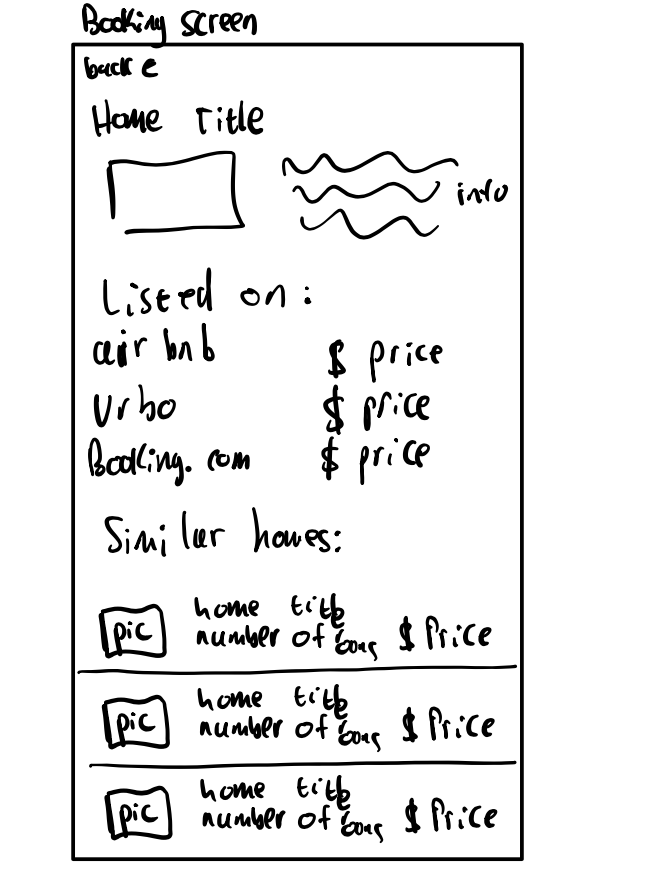 Booking screen
back
Home Title
info
Listed on:
air bnb $ price
Vrbo $ price
Booking.com $ price
Similar homes:
pic home title
number of $ Price
pic home title
number of $ Price
pic home title
number of $ Price